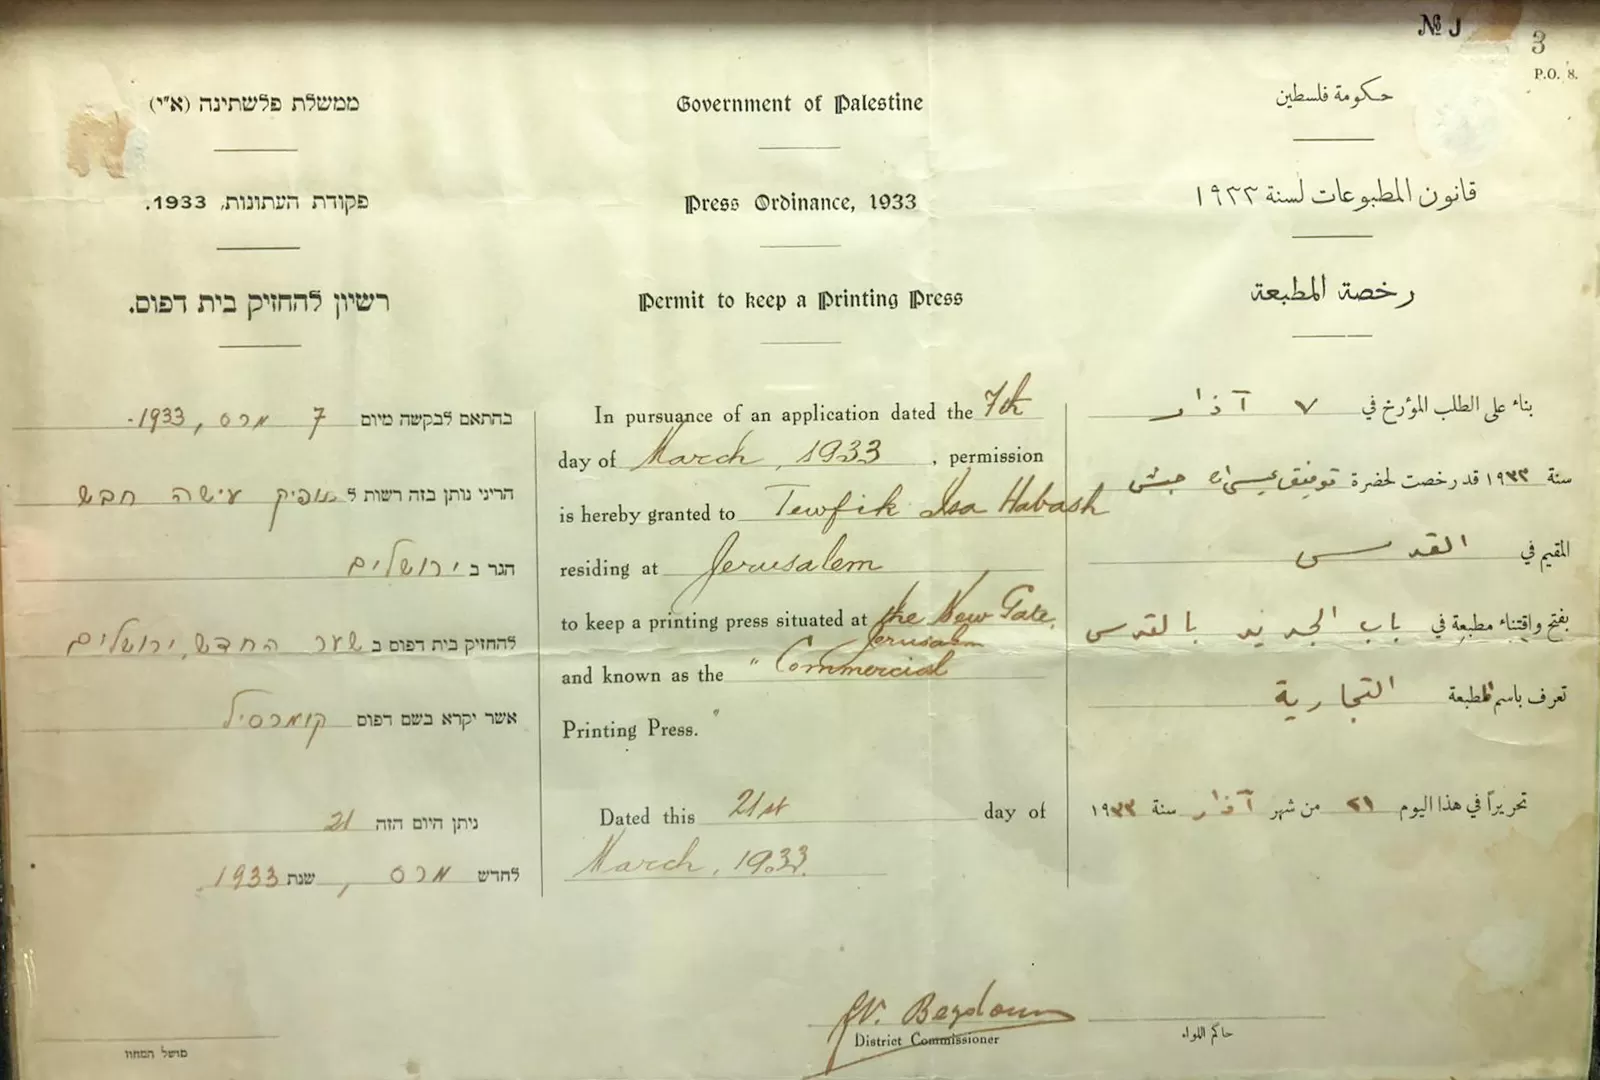 № J
3
P.O. 8.
ממשלת פלשתינה (א"י)
פקודת העתונות, 1933.
רשיון להחזיק בית דפוס.
בהתאם לבקשה מיום 7 מרס, 1933.
הריני נותן בזה רשות ל תופיק עישה חבש
הגר ב ירושלים
להחזיק בית דפוס ב שער החדש, ירושלים
אשר יקרא בשם דפוס קומרסיל
ניתן היום הזה 21
לחדש מרס, שנת 1933
מושל המחוז
Government of Palestine
Press Ordinance, 1933
Permit to keep a Printing Press
In pursuance of an application dated the 7th
day of March, 1933, permission
is hereby granted to Tewfik Isa Habash
residing at Jerusalem
to keep a printing press situated at the New Gate,
Jerusalem
and known as the "Commercial
Printing Press."
Dated this 21st day of
March, 1933.
District Commissioner
حكومة فلسطين
قانون المطبوعات لسنة ١٩٣٣
رخصة المطبعة
بناء على الطلب المؤرخ في ٧ آذار
سنة ١٩٣٣ قد رخصت لحضرة توفيق عيسى حبش
المقيم في القدس
بفتح واقتناء مطبعة في باب الجديد بالقدس
تعرف باسم المطبعة التجارية
تحريراً في هذا اليوم ٢١ من شهر آذار سنة ١٩٣٣
حاكم اللواء